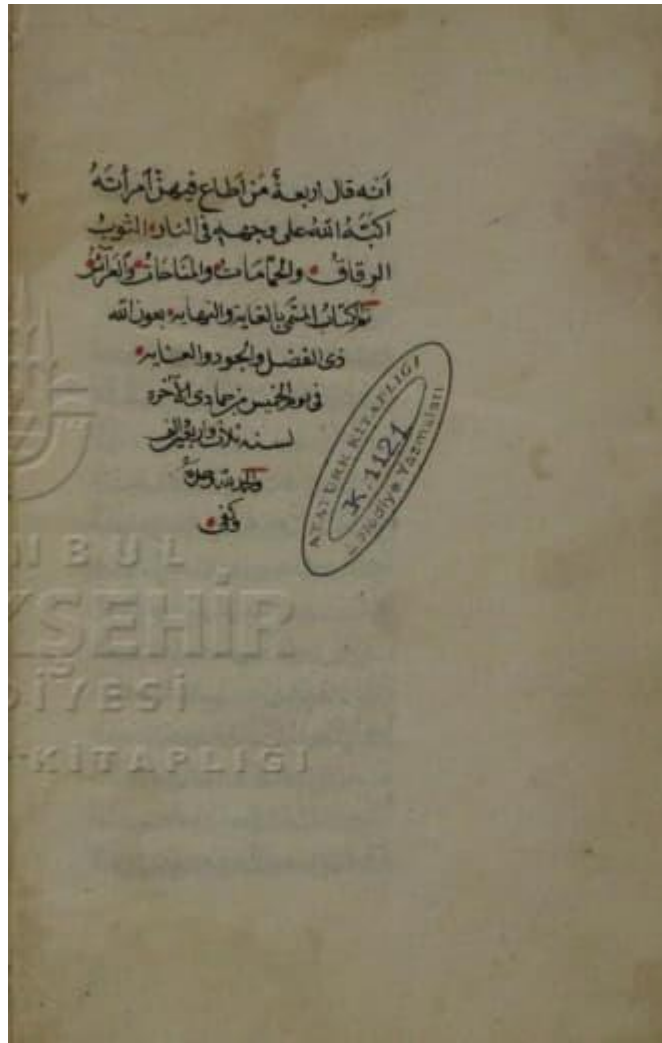 انه قال اربعةٌ مَن اطاع فيهنّ امرأتَهُ
اكبَّهُ اللهُ على وجهه في النار الثوبُ
الرقاقُ والحمّاماتُ والمناحاتُ والعرائسُ
تم كتابُ المسمّى بالغاية والنهاية بعون الله
ذى الفضل والجود والعناية
فى يوم الخميس من جمادى الآخره
لسنه ثلاث واربعين والف
والحمد لله وحده
وكفى
ATATÜRK KİTAPLIĞI
K.1121
Belediye Yazmaları
NBUL
KŞEHİR
DİYESİ
KİTAPLIĞI